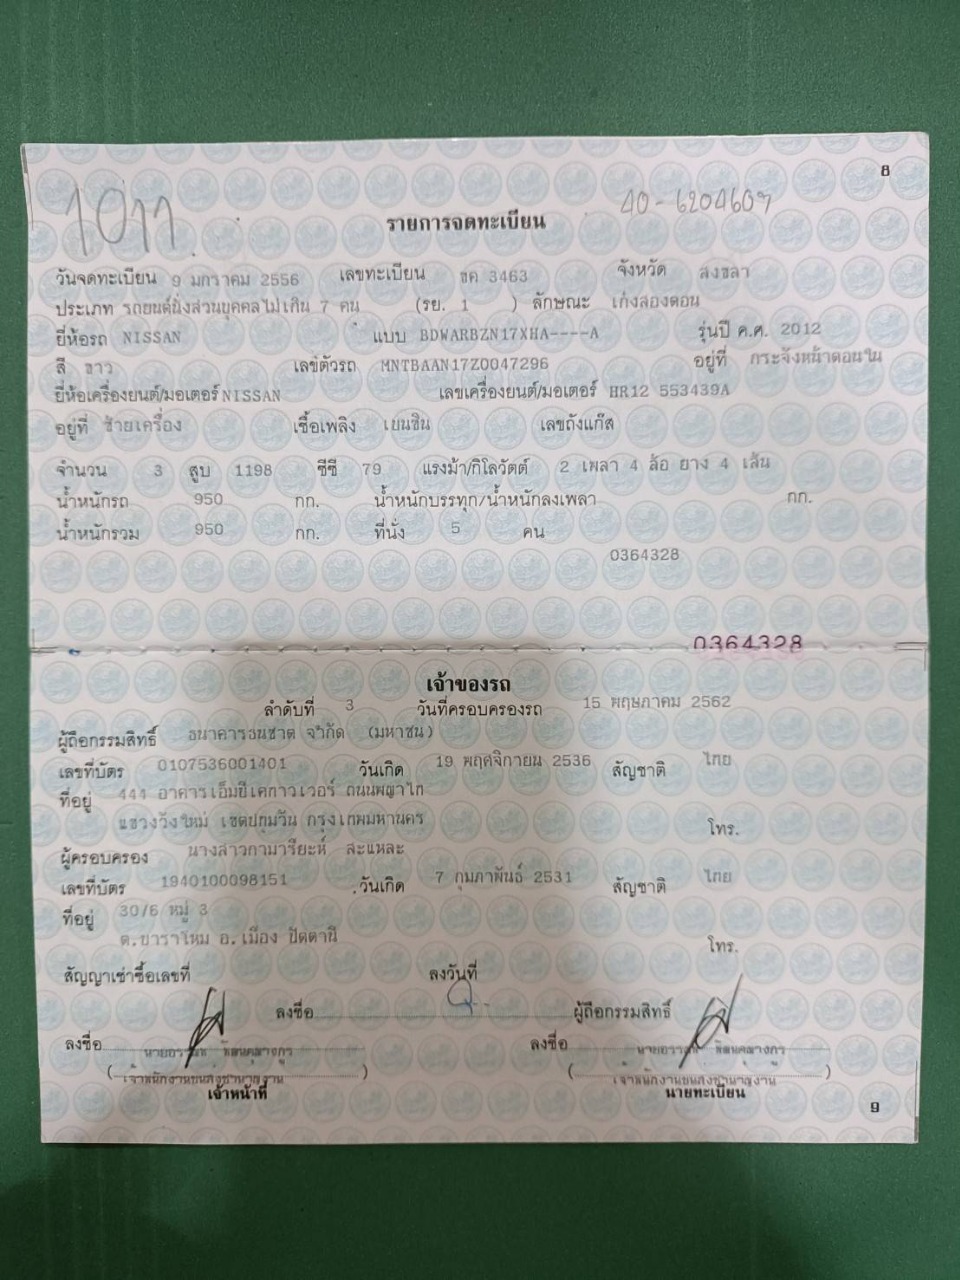 8
1011
40-6204609
รายการจดทะเบียน
วันจดทะเบียน 9 มกราคม 2556 เลขทะเบียน ขค 3463 จังหวัด สงขลา
ประเภท รถยนต์นั่งส่วนบุคคลไม่เกิน 7 คน (รย. 1 ) ลักษณะ เก๋งสองตอน
ยี่ห้อรถ NISSAN แบบ BDWARBZN17XHA----A รุ่นปี ค.ศ. 2012
สี ขาว เลขตัวรถ MNTBAAN17Z0047296 อยู่ที่ กระจังหน้าตอนใน
ยี่ห้อเครื่องยนต์/มอเตอร์ NISSAN เลขเครื่องยนต์/มอเตอร์ HR12 553439A
อยู่ที่ ซ้ายเครื่อง เชื้อเพลิง เบนซิน เลขถังแก๊ส
จำนวน 3 สูบ 1198 ซีซี 79 แรงม้า/กิโลวัตต์ 2 เพลา 4 ล้อ ยาง 4 เส้น
น้ำหนักรถ 950 กก. น้ำหนักบรรทุก/น้ำหนักลงเพลา กก.
น้ำหนักรวม 950 กก. ที่นั่ง 5 คน
0364328
0364328
เจ้าของรถ
ลำดับที่ 3 วันที่ครอบครองรถ 15 พฤษภาคม 2562
ผู้ถือกรรมสิทธิ์ ธนาคารธนชาต จำกัด (มหาชน)
เลขที่บัตร 0107536001401 วันเกิด 19 พฤศจิกายน 2536 สัญชาติ ไทย
ที่อยู่ 444 อาคารเอ็มบีเคทาวเวอร์ ถนนพญาไท
แขวงวังใหม่ เขตปทุมวัน กรุงเทพมหานคร โทร.
ผู้ครอบครอง นางสาวกามารียะห์ สะแหละ
เลขที่บัตร 1940100098151 วันเกิด 7 กุมภาพันธ์ 2531 สัญชาติ ไทย
ที่อยู่ 30/6 หมู่ 3
ต.บาราโหม อ.เมือง ปัตตานี โทร.
สัญญาเช่าซื้อเลขที่ ลงวันที่
ลงชื่อ ผู้ถือกรรมสิทธิ์
ลงชื่อ ลงชื่อ
(เจ้าพนักงานขนส่งชำนาญงาน) (เจ้าพนักงานขนส่งชำนาญงาน)
เจ้าหน้าที่ นายทะเบียน
9